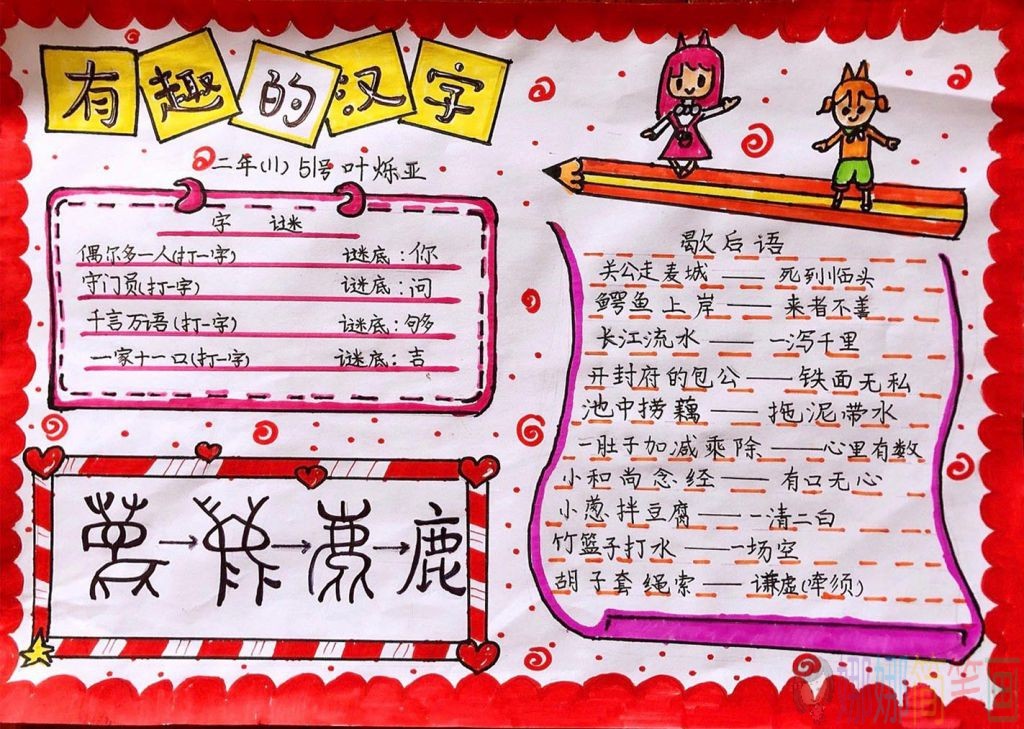 有趣的汉字
二年(11) 51号 叶烁亚
字 谜
偶尔多一人(打一字) 谜底:你
守门员(打一字) 谜底:问
千言万语(打一字) 谜底:够
一家十一口(打一字) 谜底:吉
→ → → 鹿
歇后语
关公走麦城——死到临头
鳄鱼上岸——来者不善
长江流水——一泻千里
开封府的包公——铁面无私
池中捞藕——拖泥带水
一肚子加减乘除——心里有数
小和尚念经——有口无心
小葱拌豆腐——一清二白
竹篮子打水——一场空
胡子套绳索——谦虚(牵须)
娜娜简笔画